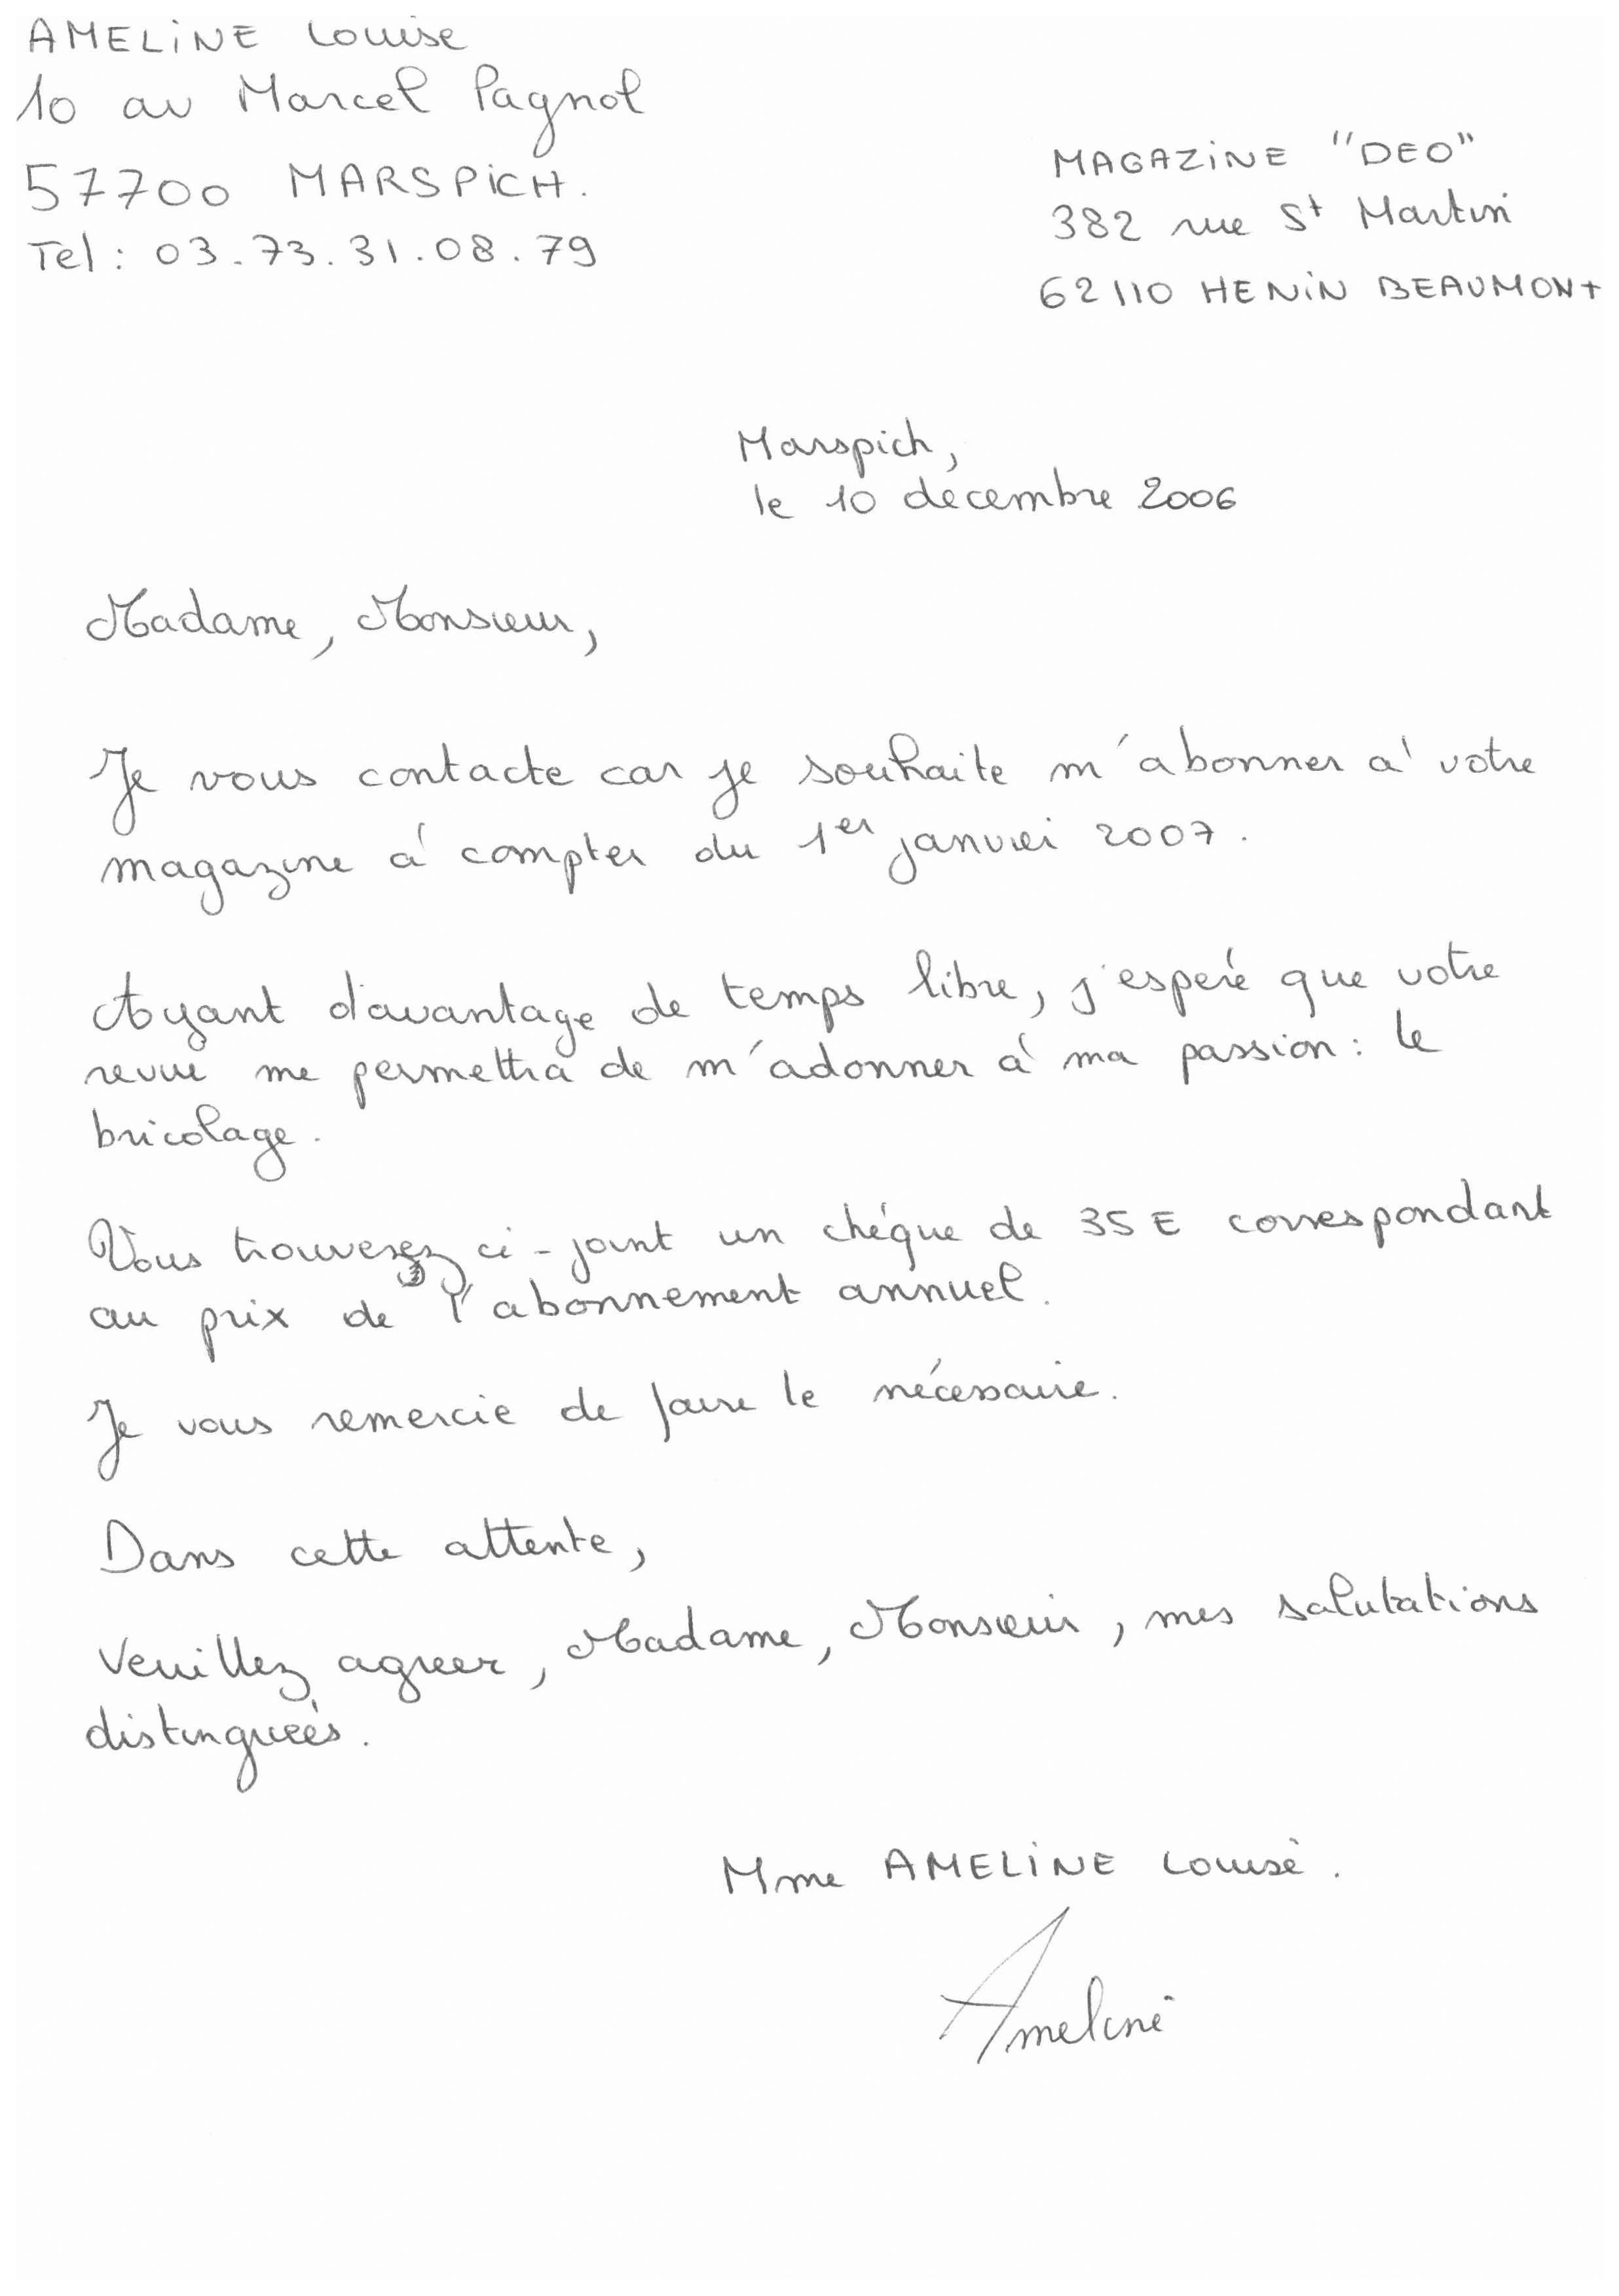 AMELINE Louise
10 av Marcel Pagnol
57700 MARSPICH.
Tel : 03.73.31.08.79
MAGAZINE "DEO"
382 rue St Martin
62110 HENIN BEAUMONT
Marspich,
le 10 decembre 2006
Madame, Monsieur,
Je vous contacte car je souhaite m'abonner à votre
magazine à compter du 1er janvier 2007.
Ayant d'avantage de temps libre, j'espère que votre
revue me permettra de m'adonner à ma passion : le
bricolage.
Vous trouverez ci-joint un chéque de 35 E correspondant
au prix de l'abonnement annuel.
Je vous remercie de faire le nécessaire.
Dans cette attente,
Veuillez agreer, Madame, Monsieur, mes salutations
distinguées.
Mme AMELINE Louise.
Ameline